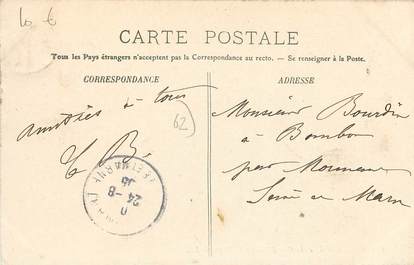 10 €
CARTE POSTALE
Tous les Pays étrangers n'acceptent pas la Correspondance au recto. — Se renseigner à la Poste.
CORRESPONDANCE
ADRESSE
amitiés à tous
62
Monsieur Bourdin
à Bombon
par Mormant
Seine et Marne
24-8